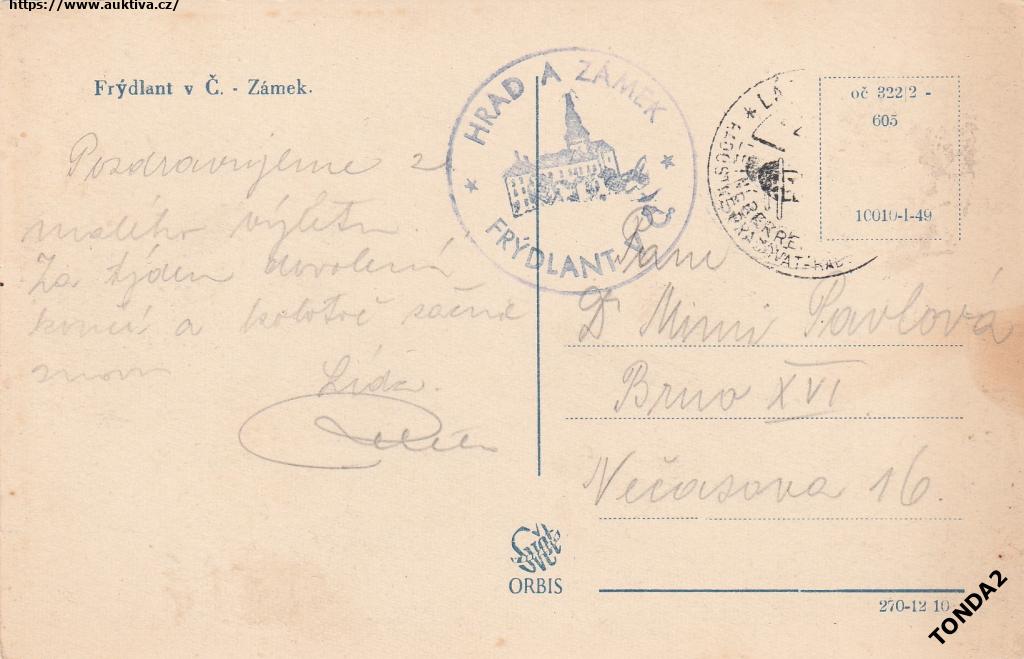 https://www.auktiva.cz/
Frýdlant v Č. - Zámek.
HRAD A ZÁMEK
FRÝDLANT v Č
oč 322/2 -
605
10010-I-49
Pozdravujeme z
malého výletu.
Za týden dovolená
končí a kolotoč začne
znovu
Lída.
Paní
Dr Mimi Pavlová
Brno XVI.
Nečasova 16.
Svět
ORBIS
270-12 10
TONDA2